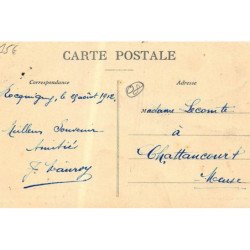 156
CARTE POSTALE
Correspondance
Adresse
Tocquigny, le 19 août 1912,
Meilleurs Souvenirs
Amitiés
madame Lecomte
à
Chattancourt
Meuse